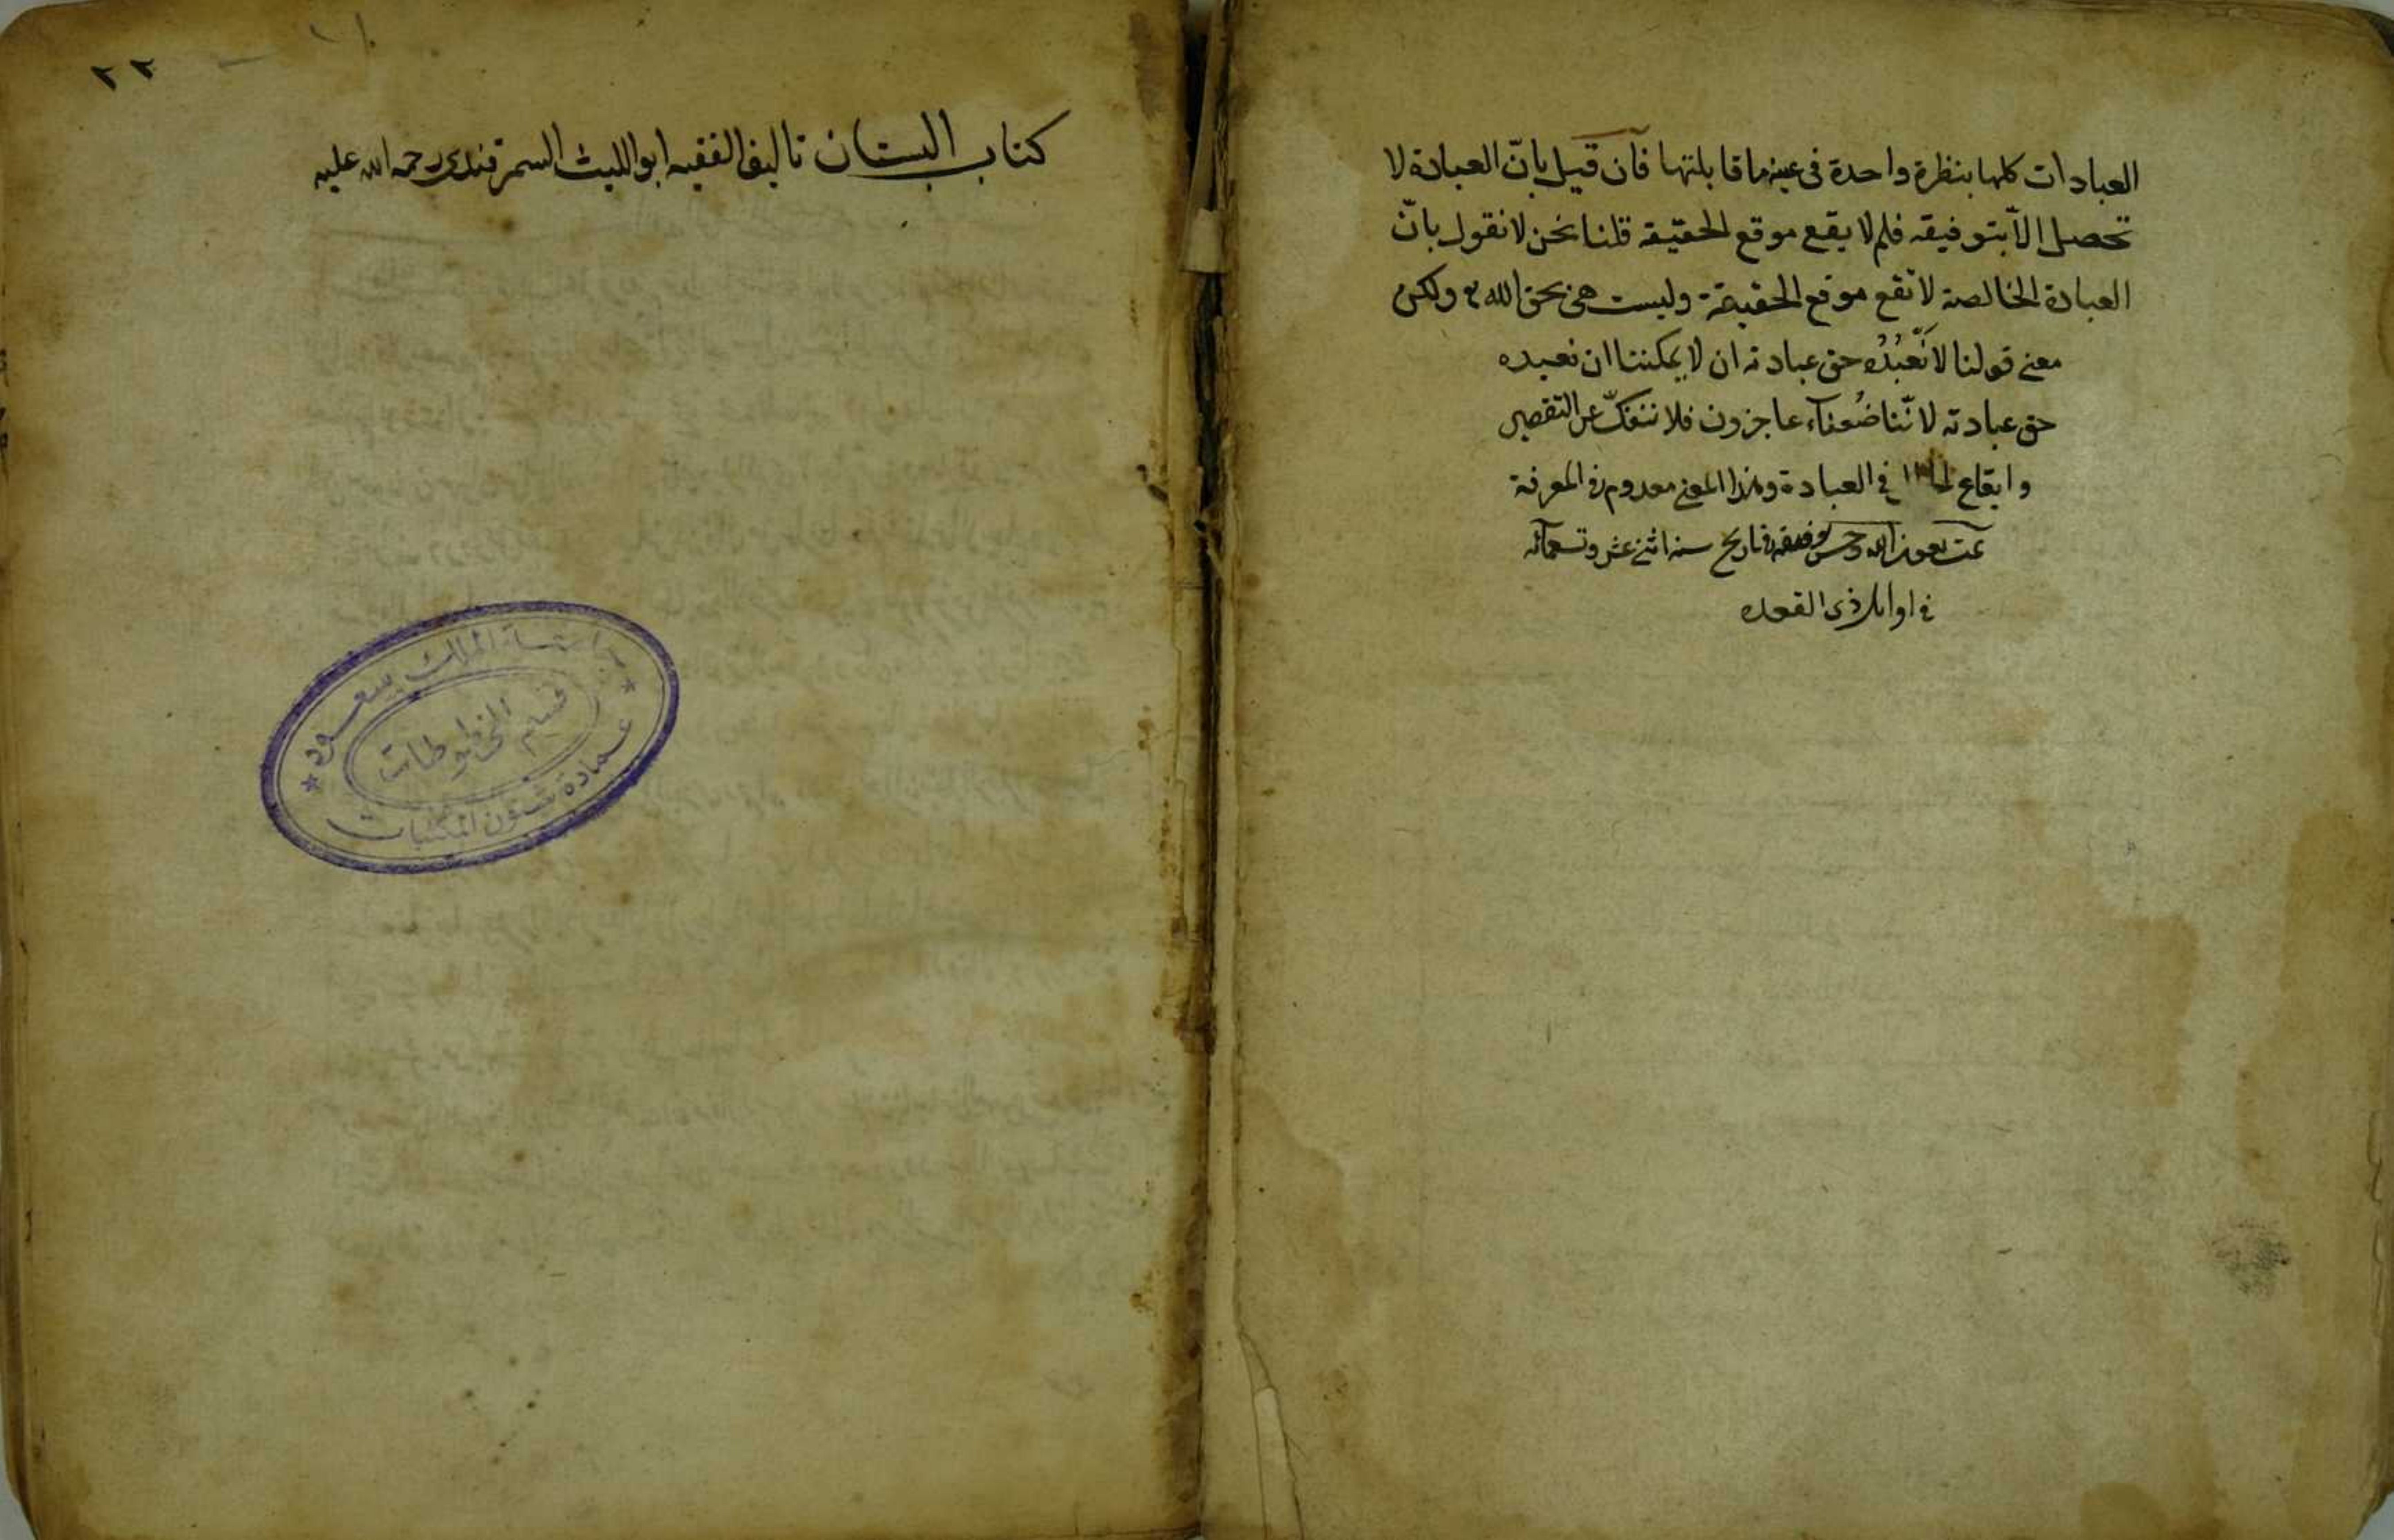 العبادات كلها بنظرة واحدة في عينه ما قابلتها فان قيل بانّ العبادة لا
تحصل الّا بتوفيقه فلم لا يقع موقع الحقيقة قلنا نحن لا نقول بانّ
العبادة الخالصة لا تقع موقع الحقيقة وليست هي بحق الله تع ولكن
معنى قولنا لا نَعْبُدُه حق عبادته ان لا يمكننا ان نعبده
حق عبادته لانّنا ضُعفآء عاجزون فلا ننفكّ عن التقصير
وايقاع في العبادة وهذا المعنى معدوم في المعرفة
تمت بعون الله وحسن توفيقه في تاريخ سنه اثنى عشر وتسعمائه
في اوايل ذى القعده
٢٢
كتاب البستان تاليف الفقيه ابو الليث السمرقندى رحمه الله عليه
جامعة الملك سعود
قسم المخطوطات
عمادة شئون المكتبات